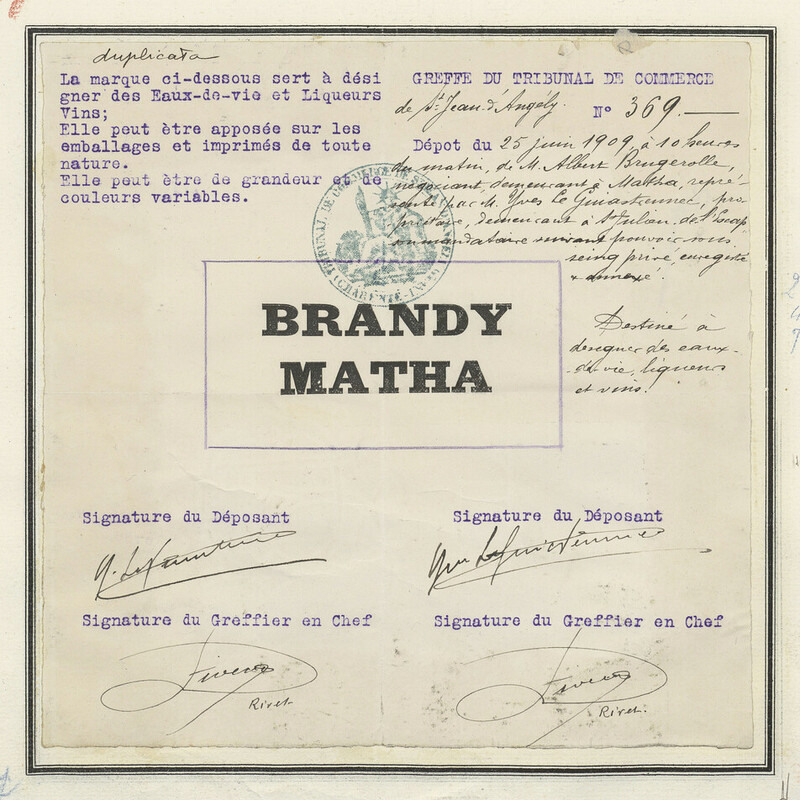 duplicata
La marque ci-dessous sert à dési
gner des Eaux-de-vie et Liqueurs
Vins;
Elle peut ètre apposée sur les
emballages et imprimés de toute
nature.
Elle peut ètre de grandeur et de
couleurs variables.
GREFFE DU TRIBUNAL DE COMMERCE
de St Jean d'Angély. N° 369.
Dépot du 25 juin 1909, à 10 heures
du matin, de M. Albert Brugerolle,
négociant, demeurant à Matha, repré-
senté par M. Yves Le Guiastennec, pro-
priétaire, demeurant à St Julien de l'Escap
mandataire suivant pouvoir sous
seing privé, enregistré
& annexé.
TRIBUNAL DE COMMERCE
(CHARENTE-INFRE)
BRANDY
MATHA
Destiné à
designer des eaux-
de-vie, liqueurs
et vins.
Signature du Déposant
Signature du Déposant
Signature du Greffier en Chef
Signature du Greffier en Chef
Rivet.
Rivet.